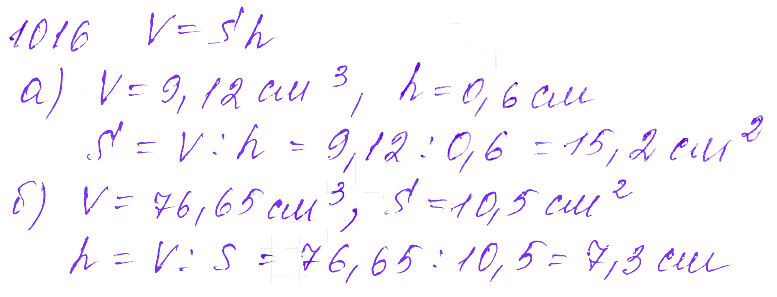 1016 V = Sh
а) V = 9,12 см³, h = 0,6 см
S = V : h = 9,12 : 0,6 = 15,2 см²
б) V = 76,65 см³, S = 10,5 см²
h = V : S = 76,65 : 10,5 = 7,3 см